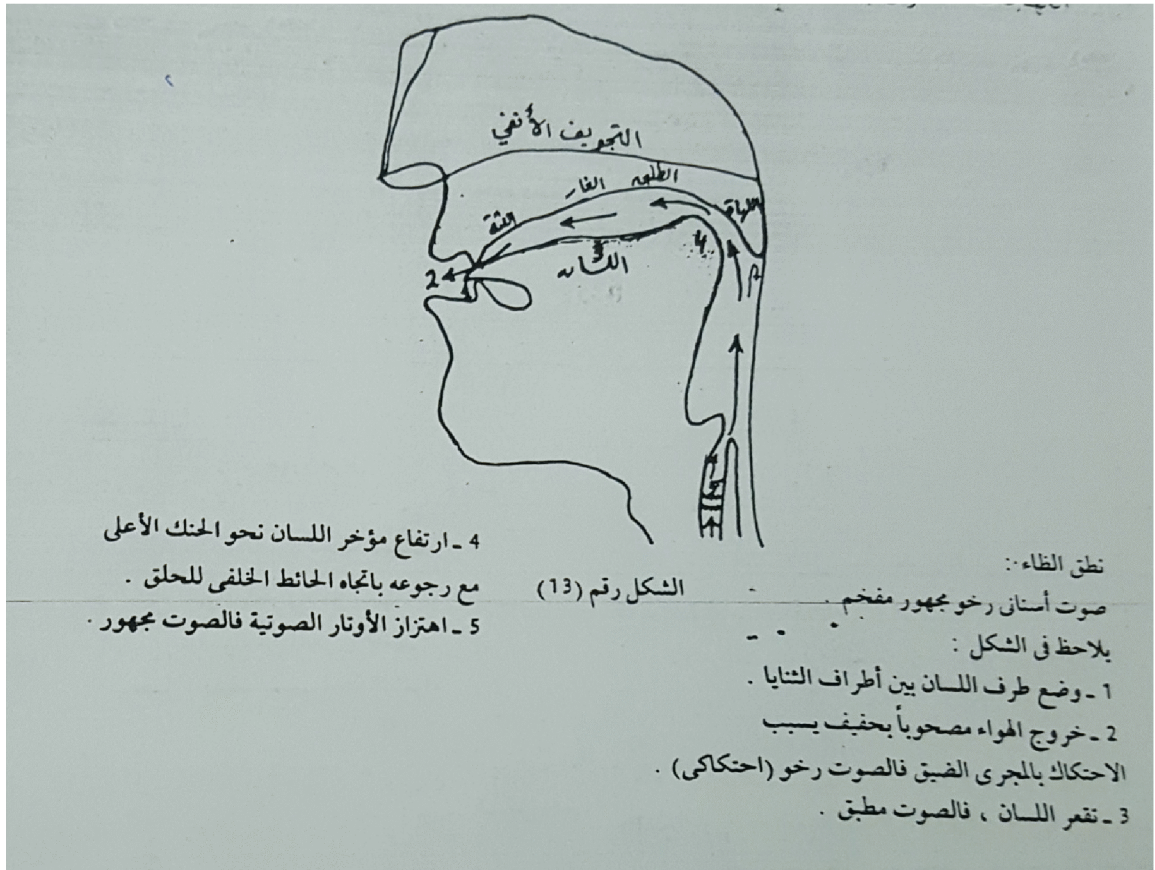 التجويف الأنفي
الطبق
الغار
اللثة
اللهاة
اللسان
2
3
4
نطق الظاء :
صوت أسنانى رخو مجهور مفخم .
يلاحظ فى الشكل :
1 ـ وضع طرف اللسان بين أطراف الثنايا .
2 ـ خروج الهواء مصحوباً بحفيف يسبب
الاحتكاك بالمجرى الضيق فالصوت رخو (احتكاكى) .
3 ـ تقعر اللسان ، فالصوت مطبق .
الشكل رقم (13)
4 ـ ارتفاع مؤخر اللسان نحو الحنك الأعلى
مع رجوعه باتجاه الحائط الخلفى للحلق .
5 ـ اهتزاز الأوتار الصوتية فالصوت مجهور .